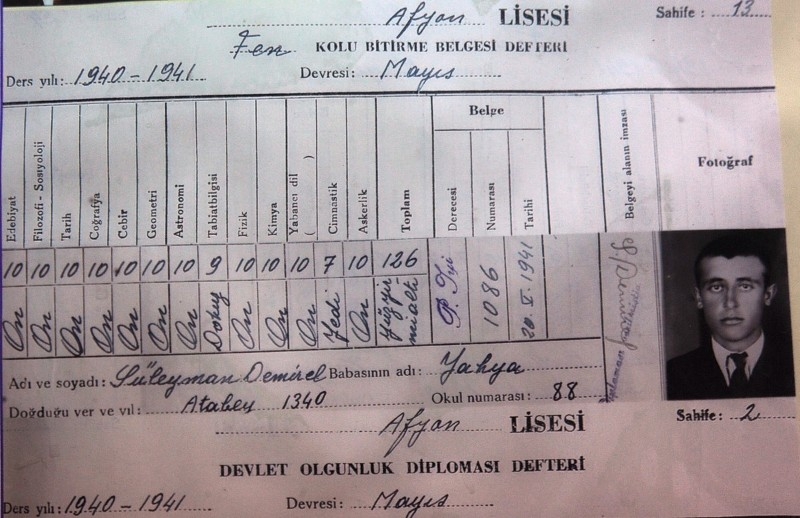 Afyon LİSESİ
Sahife: 13
Fen KOLU BİTİRME BELGESİ DEFTERİ
Ders yılı: 1940-1941 Devresi: Mayıs
Edebiyat Filozofi - Sosyoloji Tarih Coğrafya Cebir Geometri Astronomi Tabiatbilgisi Fizik Kimya Yabancı dil ( ) Cimnastik Askerlik Toplam
Belge
Derecesi Numarası Tarihi
Belgeyi alanın imzası
Fotoğraf
10 10 10 10 10 10 10 9 10 10 10 7 10 126
On On On On On On On Dokuz On On On Yedi On yüzyirmialtı
P. İyi 1086 20.V.1941
Adı ve soyadı: Süleyman Demirel Babasının adı: Yahya
Doğduğu yer ve yıl: Atabey 1340 Okul numarası: 88
Afyon LİSESİ
Sahife: 2
DEVLET OLGUNLUK DİPLOMASI DEFTERİ
Ders yılı: 1940-1941 Devresi: Mayıs